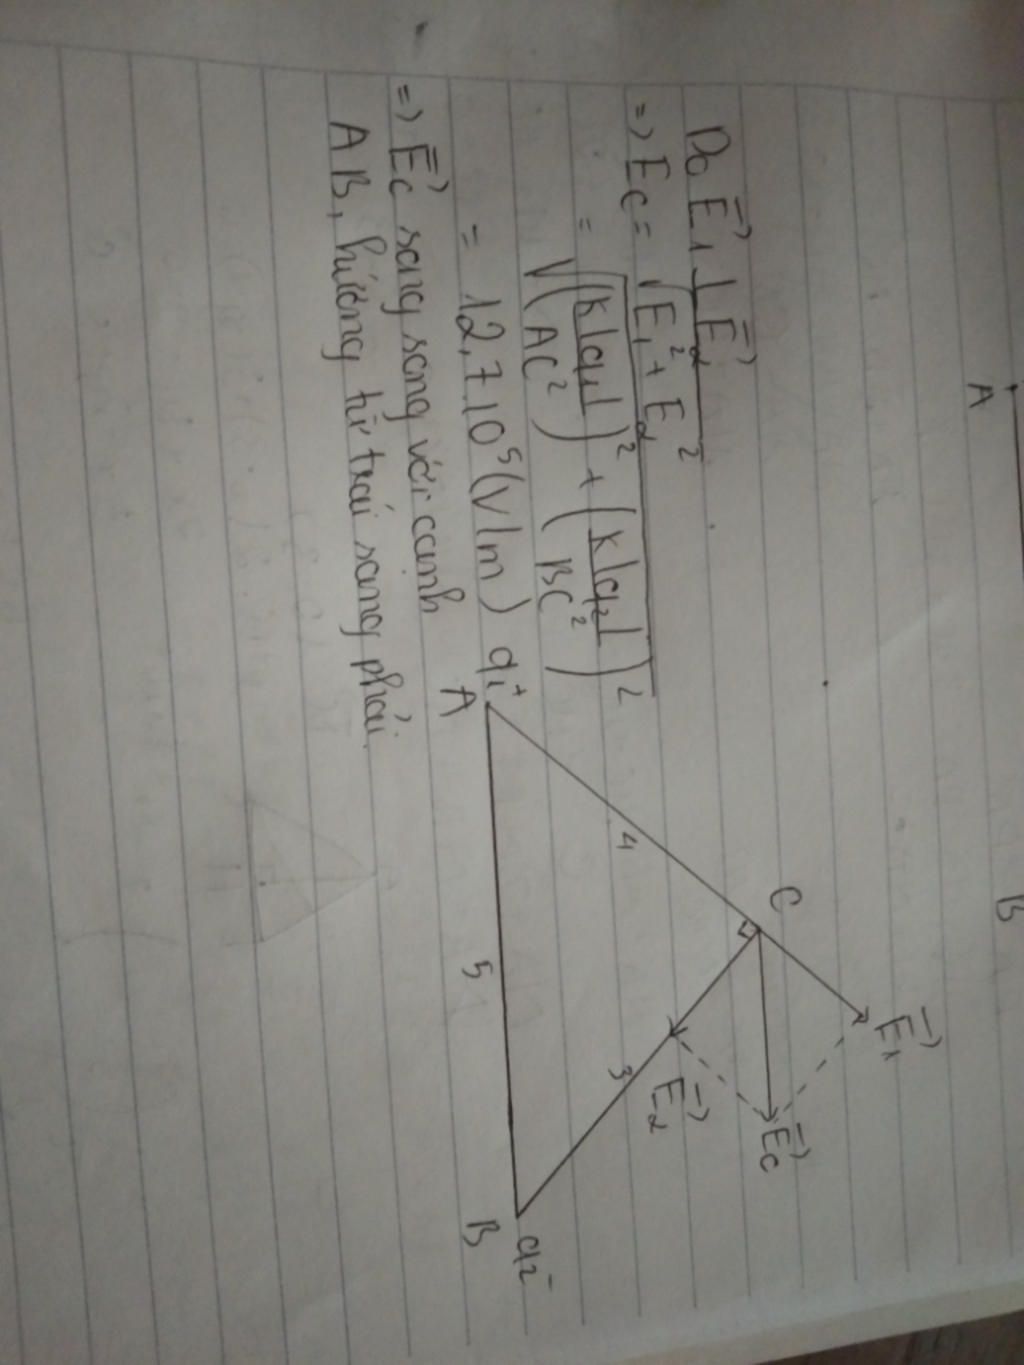 A
B
Do E₁⃗ ⊥ E₂⃗
=> Ec = √(E₁² + E₂²)
= √((k|q₁|/AC²)² + (k|q₂|/BC²)²)
= 12,7.10⁵ (V/m)
=> E⃗c song song với cạnh
AB, hướng từ trái sang phải
q₁⁺
A
4
C
E₁⃗
E₂⃗
E⃗c
3
5
B
q₂⁻